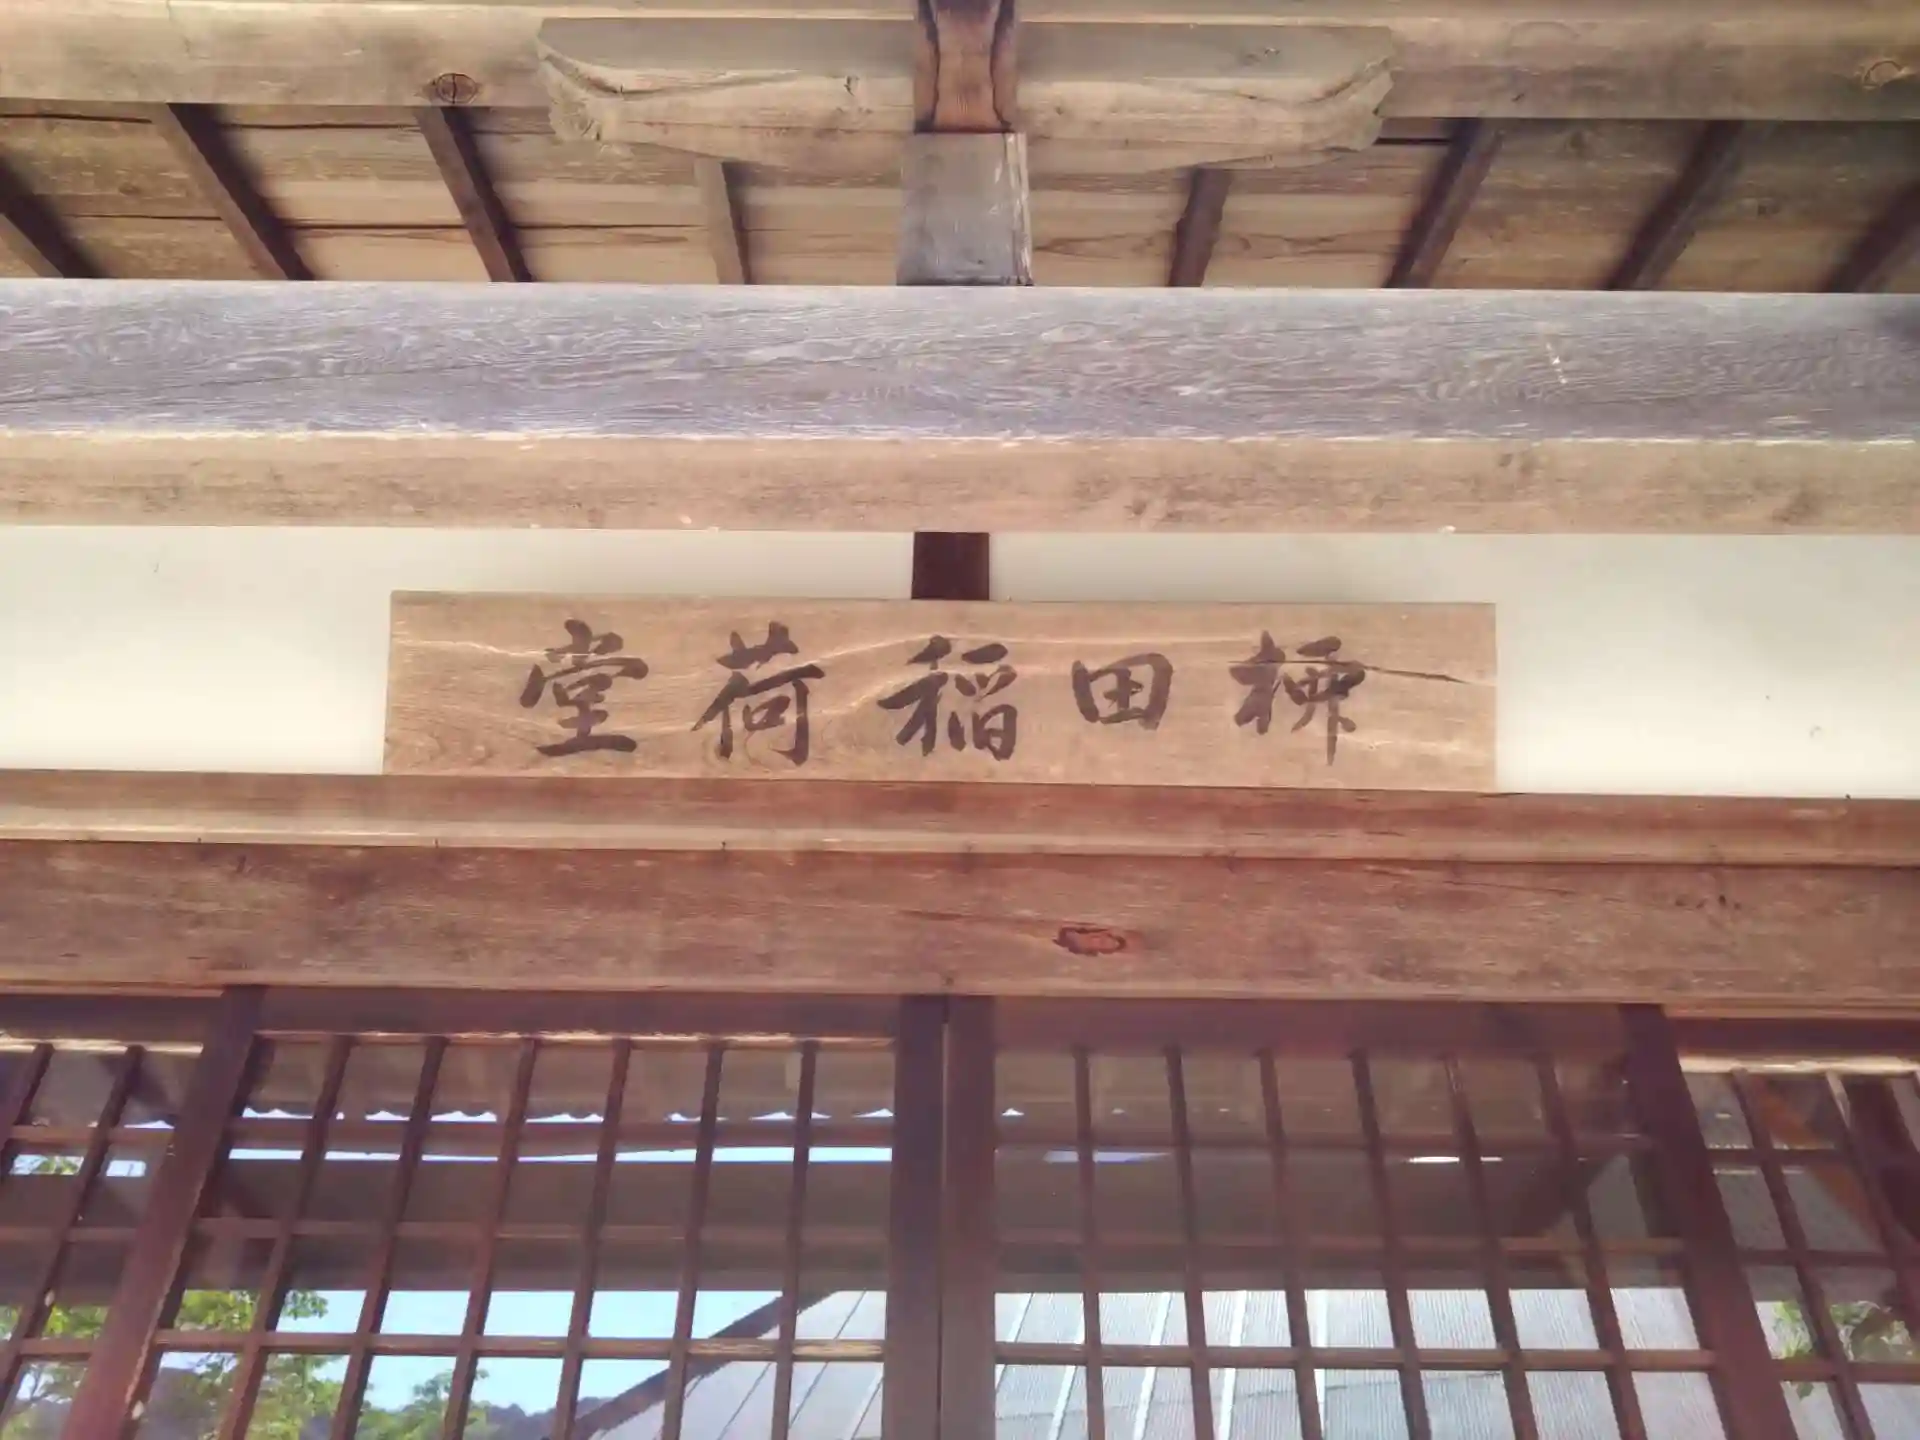 田稲荷堂